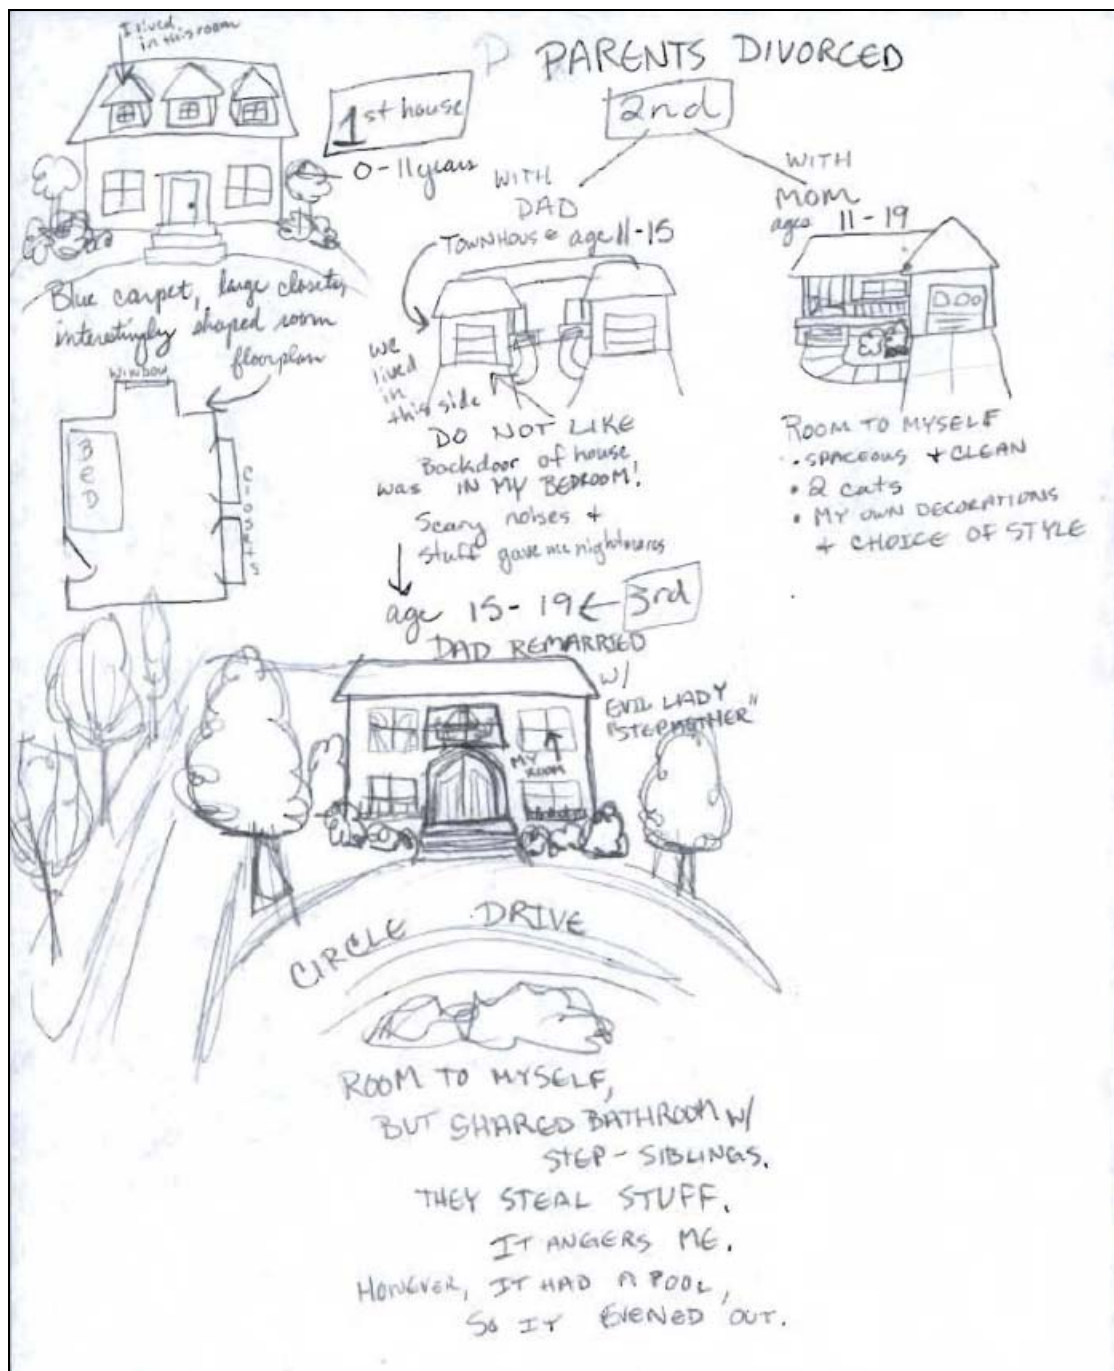 I lived
in this room
1st house
0-11 years
Blue carpet, large closets,
interestingly shaped room
floorplan
WINDOW
BED
Closets
P PARENTS DIVORCED
2nd
WITH
DAD
TOWNHOUSE age 11-15
we
lived
in
this side
DO NOT LIKE
Backdoor of house
was IN MY BEDROOM!
Scary noises +
stuff gave me nightmares
WITH
MOM
ages 11-19
ROOM TO MYSELF
• SPACEOUS + CLEAN
• 2 cats
• MY OWN DECORATIONS
+ CHOICE OF STYLE
age 15-19 ← 3rd
DAD REMARRIED
W/
EVIL LADY
"STEPMOTHER"
MY
ROOM
CIRCLE DRIVE
ROOM TO MYSELF,
BUT SHARED BATHROOM W/
STEP-SIBLINGS.
THEY STEAL STUFF.
IT ANGERS ME.
HOWEVER, IT HAD A POOL,
SO IT EVENED OUT.